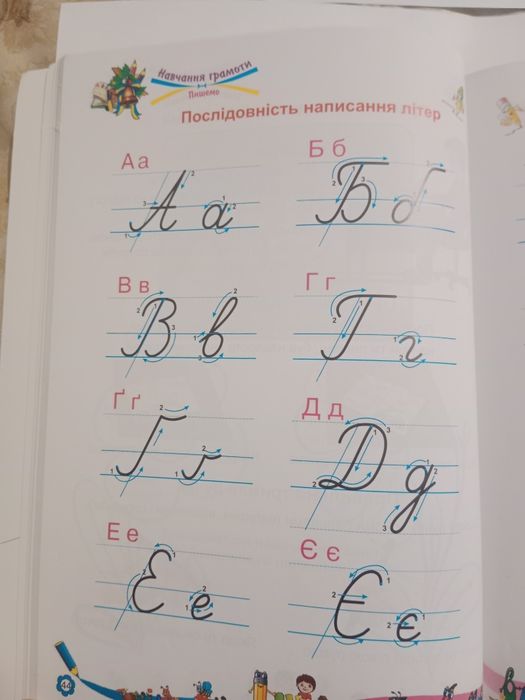 Навчання грамоти
Пишемо
Послідовність написання літер
А а
Б б
А а
Б б
В в
Г г
В в
Г г
Ґ ґ
Д д
Ґ ґ
Д д
Е е
Є є
Е е
Є є
44